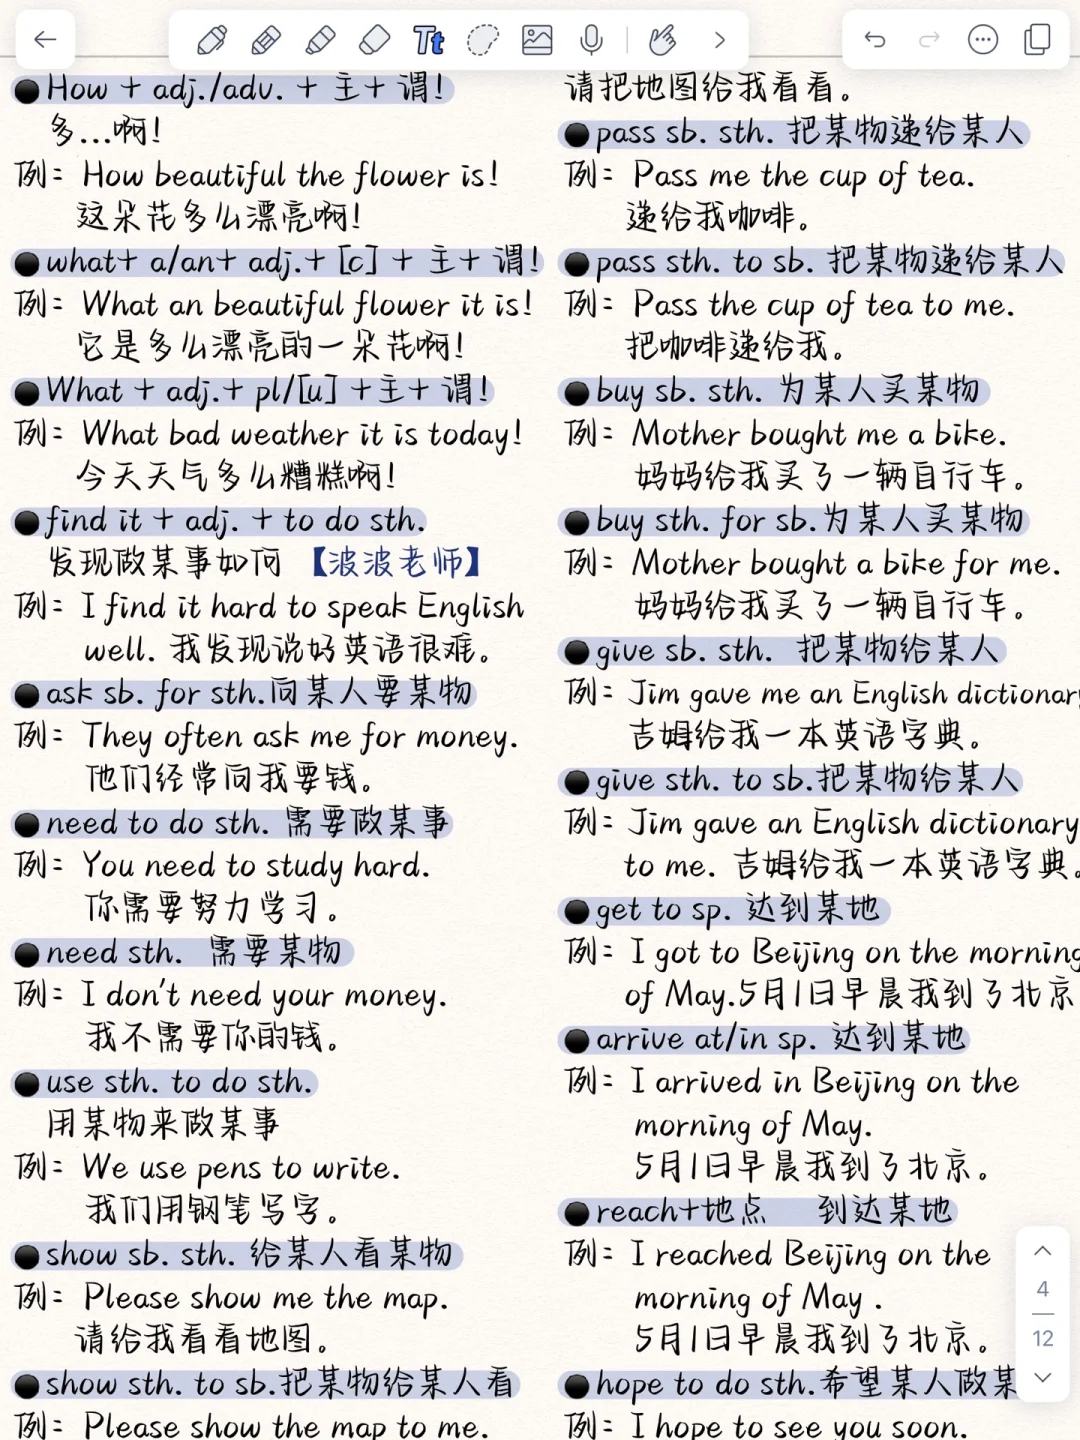 Tt
How + adj./adv. + 主+ 谓!
多...啊!
例: How beautiful the flower is!
这朵花多么漂亮啊!
what+ a/an+ adj.+ [c] + 主+ 谓!
例: What an beautiful flower it is!
它是多么漂亮的一朵花啊!
What + adj.+ pl/[u] +主+ 谓!
例: What bad weather it is today!
今天天气多么糟糕啊!
find it + adj. + to do sth.
发现做某事如何 【波波老师】
例: I find it hard to speak English
well. 我发现说好英语很难。
ask sb. for sth.向某人要某物
例: They often ask me for money.
他们经常向我要钱。
need to do sth. 需要做某事
例: You need to study hard.
你需要努力学习。
need sth. 需要某物
例: I don't need your money.
我不需要你的钱。
use sth. to do sth.
用某物来做某事
例: We use pens to write.
我们用钢笔写字。
show sb. sth. 给某人看某物
例: Please show me the map.
请给我看看地图。
show sth. to sb.把某物给某人看
例: Please show the map to me.
请把地图给我看看。
pass sb. sth. 把某物递给某人
例: Pass me the cup of tea.
递给我咖啡。
pass sth. to sb. 把某物递给某人
例: Pass the cup of tea to me.
把咖啡递给我。
buy sb. sth. 为某人买某物
例: Mother bought me a bike.
妈妈给我买了一辆自行车。
buy sth. for sb.为某人买某物
例: Mother bought a bike for me.
妈妈给我买了一辆自行车。
give sb. sth. 把某物给某人
例: Jim gave me an English dictionary
吉姆给我一本英语字典。
give sth. to sb.把某物给某人
例: Jim gave an English dictionary
to me. 吉姆给我一本英语字典。
get to sp. 达到某地
例: I got to Beijing on the morning
of May.5月1日早晨我到了北京
arrive at/in sp. 达到某地
例: I arrived in Beijing on the
morning of May.
5月1日早晨我到了北京。
reach+地点 到达某地
例: I reached Beijing on the
morning of May .
5月1日早晨我到了北京。
hope to do sth.希望某人做某
例: I hope to see you soon.
4
12